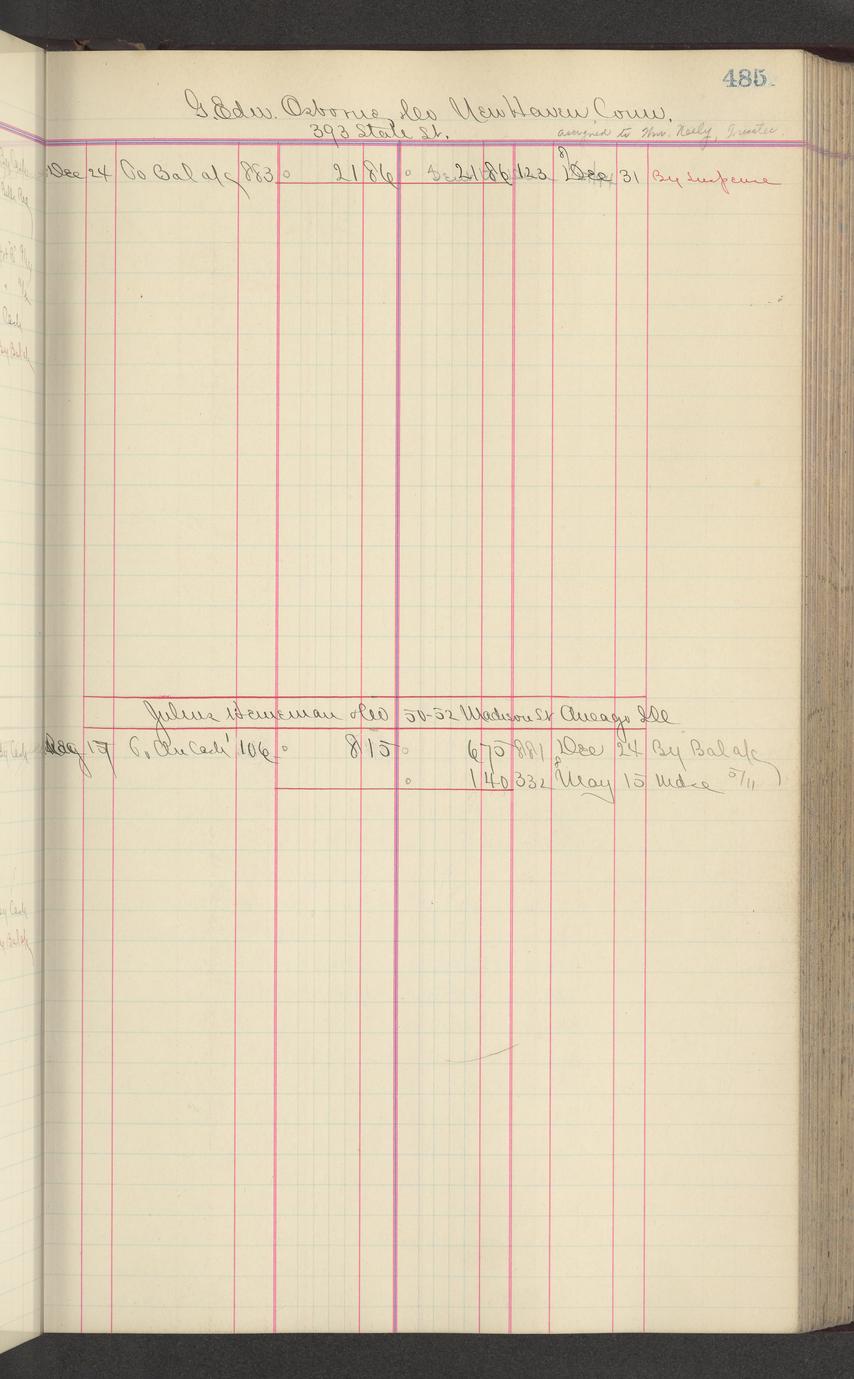 485
G. Edw. Osborne & Co New Haven, Conn.
393 State St. assigned to Wm. Neely, Trustee.
Dec 24 To Bal a/c 883 21 86 21 86 123 Dec 31 By Suspense
Julius Heineman & Co 50-52 Madison St Chicago Ill
Aug 15 106 8 15 6 75 881 Dec 24 By Bal a/c
1 40 332 May 15 Mdse 5/11